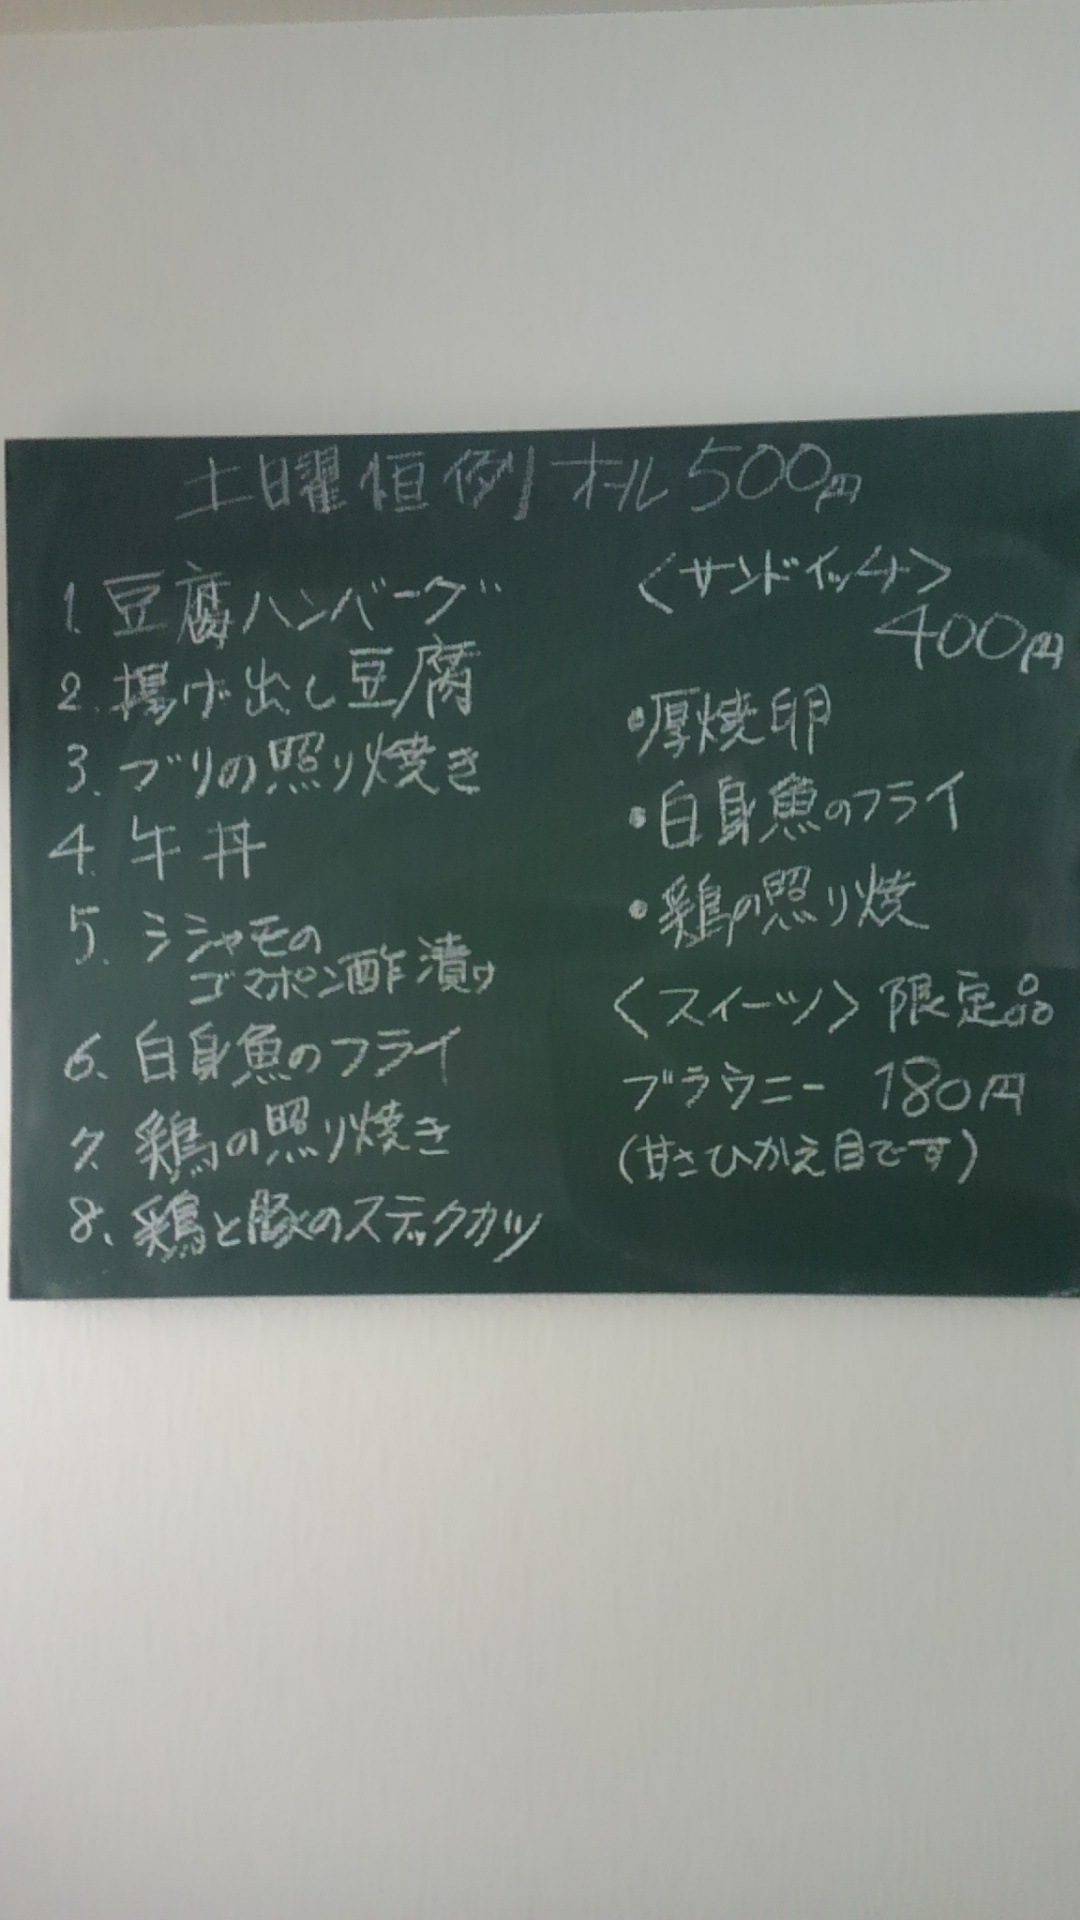 土曜恒例オール500円
1. 豆腐ハンバーグ
2. 揚げ出し豆腐
3. ブリの照り焼き
4. 牛丼
5. シシャモの
ゴマポン酢漬け
6. 白身魚のフライ
7. 鶏の照り焼き
8. 鶏と豚のスティックカツ
〈サンドイッチ〉
400円
・厚焼卵
・白身魚のフライ
・鶏の照り焼
〈スイーツ〉限定品
ブラウニー 180円
(甘さひかえ目です)